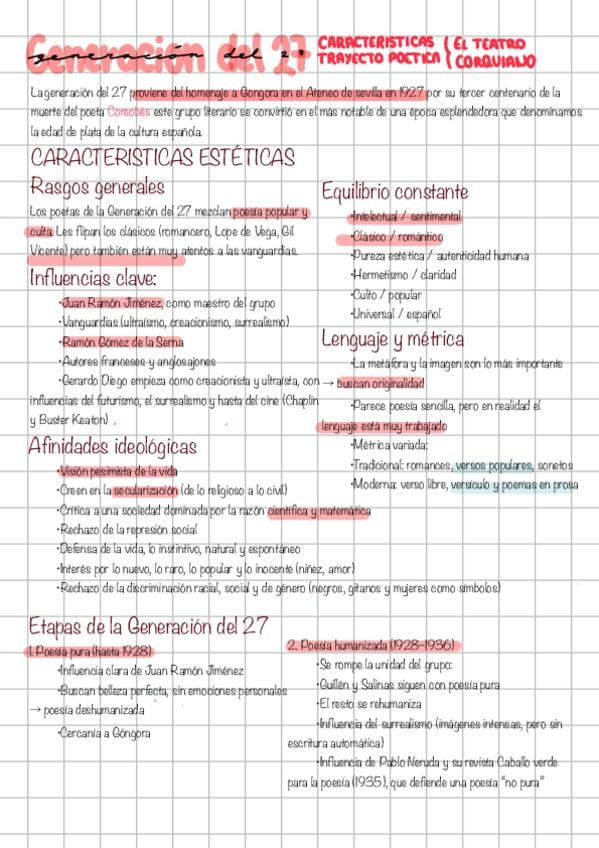 Generación del 27
generación del 27
CARACTERISTICAS
TRAYECTO POETICA
EL TEATRO
LORQUIANO
La generación del 27 proviene del homenaje a Gongora en el Ateneo de sevilla en 1927 por su tercer centenario de la
muerte del poeta Coreobés este grupo literario se convirtió en el más notable de una época esplendorea que denominamos
la edad de plata de la cultura española.
CARACTERISTICAS ESTÉTICAS
Rasgos generales
Los poetas de la Generación del 27 mezclan poesía popular y
culta. Les flipan los clásicos (romancero, Lope de Vega, Gil
Vicente) pero también están muy atentos a las vanguardias.
Influencias clave:
•Juan Ramón Jiménez, como maestro del grupo
•Vanguardias (ultraísmo, creacionismo, surrealismo)
•Ramón Gómez de la Serna
•Autores franceses y anglosajones
•Gerardo Diego empieza como creacionista y ultraísta, con
influencias del futurismo, el surrealismo y hasta del cine (Chaplin
y Buster Keaton) .
Afinidades ideológicas
•Visión pesimista de la vida
•Creen en la secularización (de lo religioso a lo civil)
•Crítica a una sociedad dominada por la razón científica y matemática
•Rechazo de la represión social
•Defensa de la vida, lo instintivo, natural y espontáneo
•Interés por lo nuevo, lo raro, lo popular y lo inocente (niñez, amor)
•Rechazo de la discriminación racial, social y de género (negros, gitanos y mujeres como símbolos)
Equilibrio constante
•Intelectual / sentimental
•Clásico / romántico
•Pureza estética / autenticidad humana
•Hermetismo / claridad
•Culto / popular
•Universal / español
Lenguaje y métrica
•La metáfora y la imagen son lo más importante
→ buscan originalidad
•Parece poesía sencilla, pero en realidad el
lenguaje está muy trabajado
•Métrica variada:
•Tradicional: romances, versos populares, sonetos
•Moderna: verso libre, versículo y poemas en prosa
Etapas de la Generación del 27
1. Poesía pura (hasta 1928)
•Influencia clara de Juan Ramón Jiménez
•Buscan belleza perfecta, sin emociones personales
→ poesía deshumanizada
•Cercanía a Góngora
2. Poesía humanizada (1928-1936)
•Se rompe la unidad del grupo:
•Guillén y Salinas siguen con poesía pura
•El resto se rehumaniza
•Influencia del surrealismo (imágenes intensas, pero sin
escritura automática)
•Influencia de Pablo Neruda y su revista Caballo verde
para la poesía (1935), que defiende una poesía "no pura"